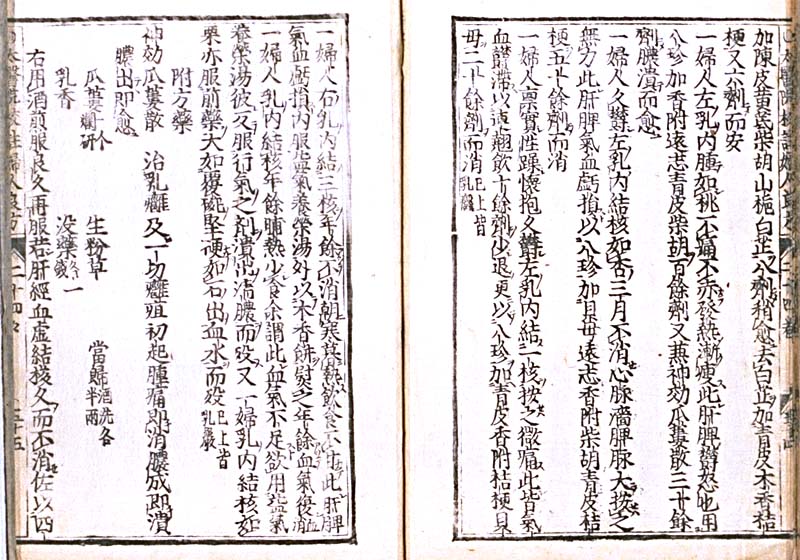 加陳皮黄茋柴胡山梔白芷八劑稍愈去白芷加青皮木香桔
梗又六劑而安
一婦人左乳内腫如桃不痛不赤發熱漸瘦此肝脾鬱怒也用
八珍加香附遠志青皮柴胡百餘劑又兼神効瓜蔞散三十餘
劑膿潰而愈
一婦人久鬱左乳内結核如杏三月不消心脉濇脾脉大按之
無力此肝脾氣血虧損以八珍加貝母遠志香附柴胡青皮桔
梗五十餘劑而消
一婦人禀實性躁懷抱久鬱左乳内結一核按之微痛此皆氣
血鬱滯以連翹飲十餘劑少退更以八珍加青皮香附桔梗貝
母二十餘劑而消 已上皆乳癰
一婦人右乳内結三核年餘不消朝寒暮熱飲食不甘此肝脾
氣血虧損内服益氣養榮湯外以木香餅熨之年餘血氣復而
一婦人乳内結核年餘晡熱少食余謂此血氣不足欲用益氣
養榮湯彼反服行氣之劑潰出清膿而歿又一婦乳内結核如
栗亦服前藥大如覆碗堅硬如石出血水而歿 已上皆乳巖
附方藥
神効瓜蔞散 治乳癰及一切癰疽初起腫痛即消膿成即潰
膿出即愈
瓜蔞 一个爛研 生粉草 當歸 酒洗各半兩
乳香 没藥 各一錢
右用酒煎服良久再服若肝經血虚結核久而不消佐以四